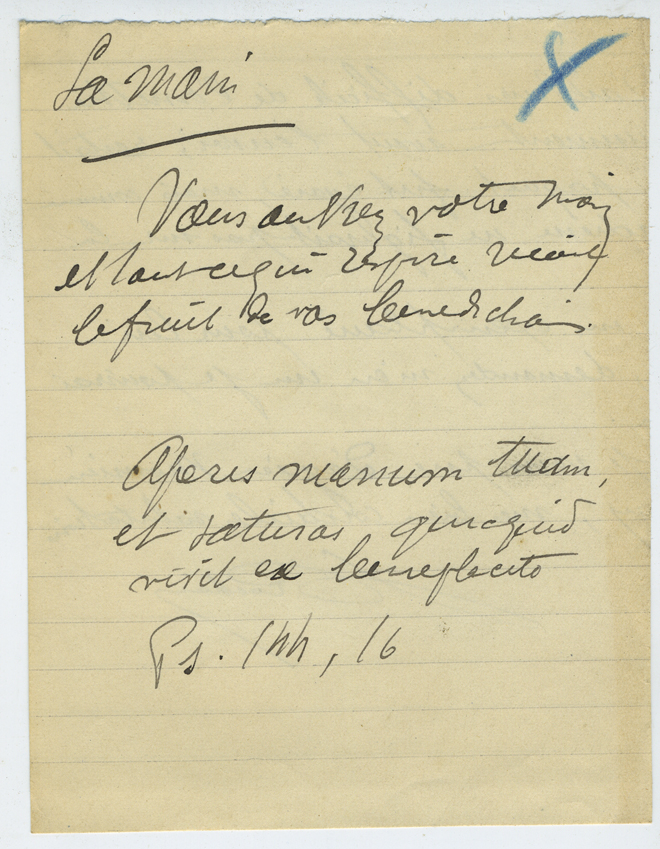 La main
Vous ouvrez votre main
et tout ce qui respire reçoit
le fruit de vos benedictions.
Aperis manum tuam,
et saturas quidquid
vivit ex beneplacito
Ps. 144, 16